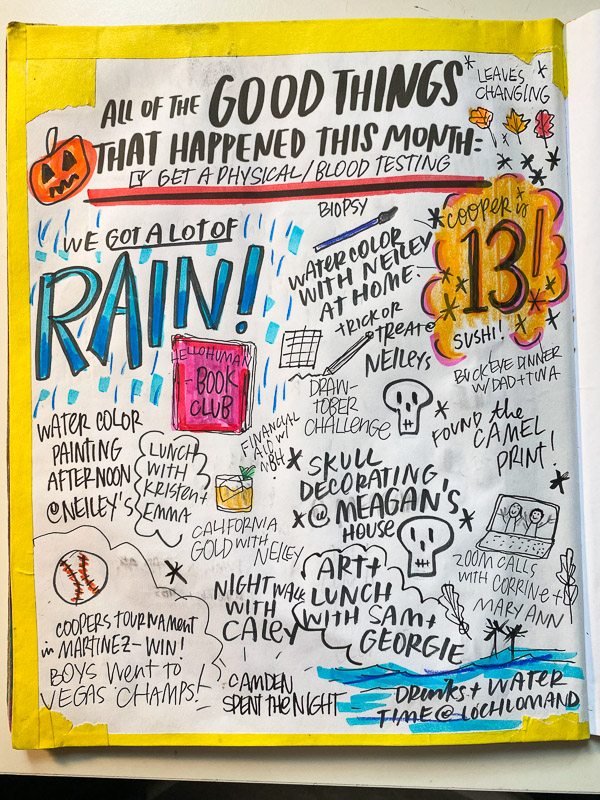 ALL OF THE GOOD THINGS
THAT HAPPENED THIS MONTH:
GET A PHYSICAL/BLOOD TESTING
LEAVES
CHANGING
WE GOT A LOT OF
RAIN!
BIOPSY
WATERCOLOR
WITH NEILEY
AT HOME
COOPER is
13!
SUSHI!
tRICK OR
tREAtE
NEILEYS
BUCKEYE DINNER
W/DAD+TINA
HELLOHUMAN
BOOK
CLUB
DRAW-
TOBER
CHALLENGE
FOUND the
CAMEL
PRINT!
WATER COLOR
PAINTING
AFTERNOON
@NEILEY'S
LUNCH
WITH
KRISTEN+
EMMA
FINANCIAL
CALIFORNIA
GOLD WITH
NEILEY
SKULL
DECORATING
@ MEAGAN'S
HOUSE
ZOOM CALLS
WITH CORRINE+
MARY ANN
COOPERS tOURNAMENT
in MARTINEZ-WIN!
BOYS WENT TO
VEGAS CHAMPS!
NIGHT WALK
WITH
CALEY
ART+
LUNCH
WITH SAM+
GEORGIE
CAMDEN
SPENT THE NIGHT
DRINKS + WATER
TIME @ LOCHLOMAND